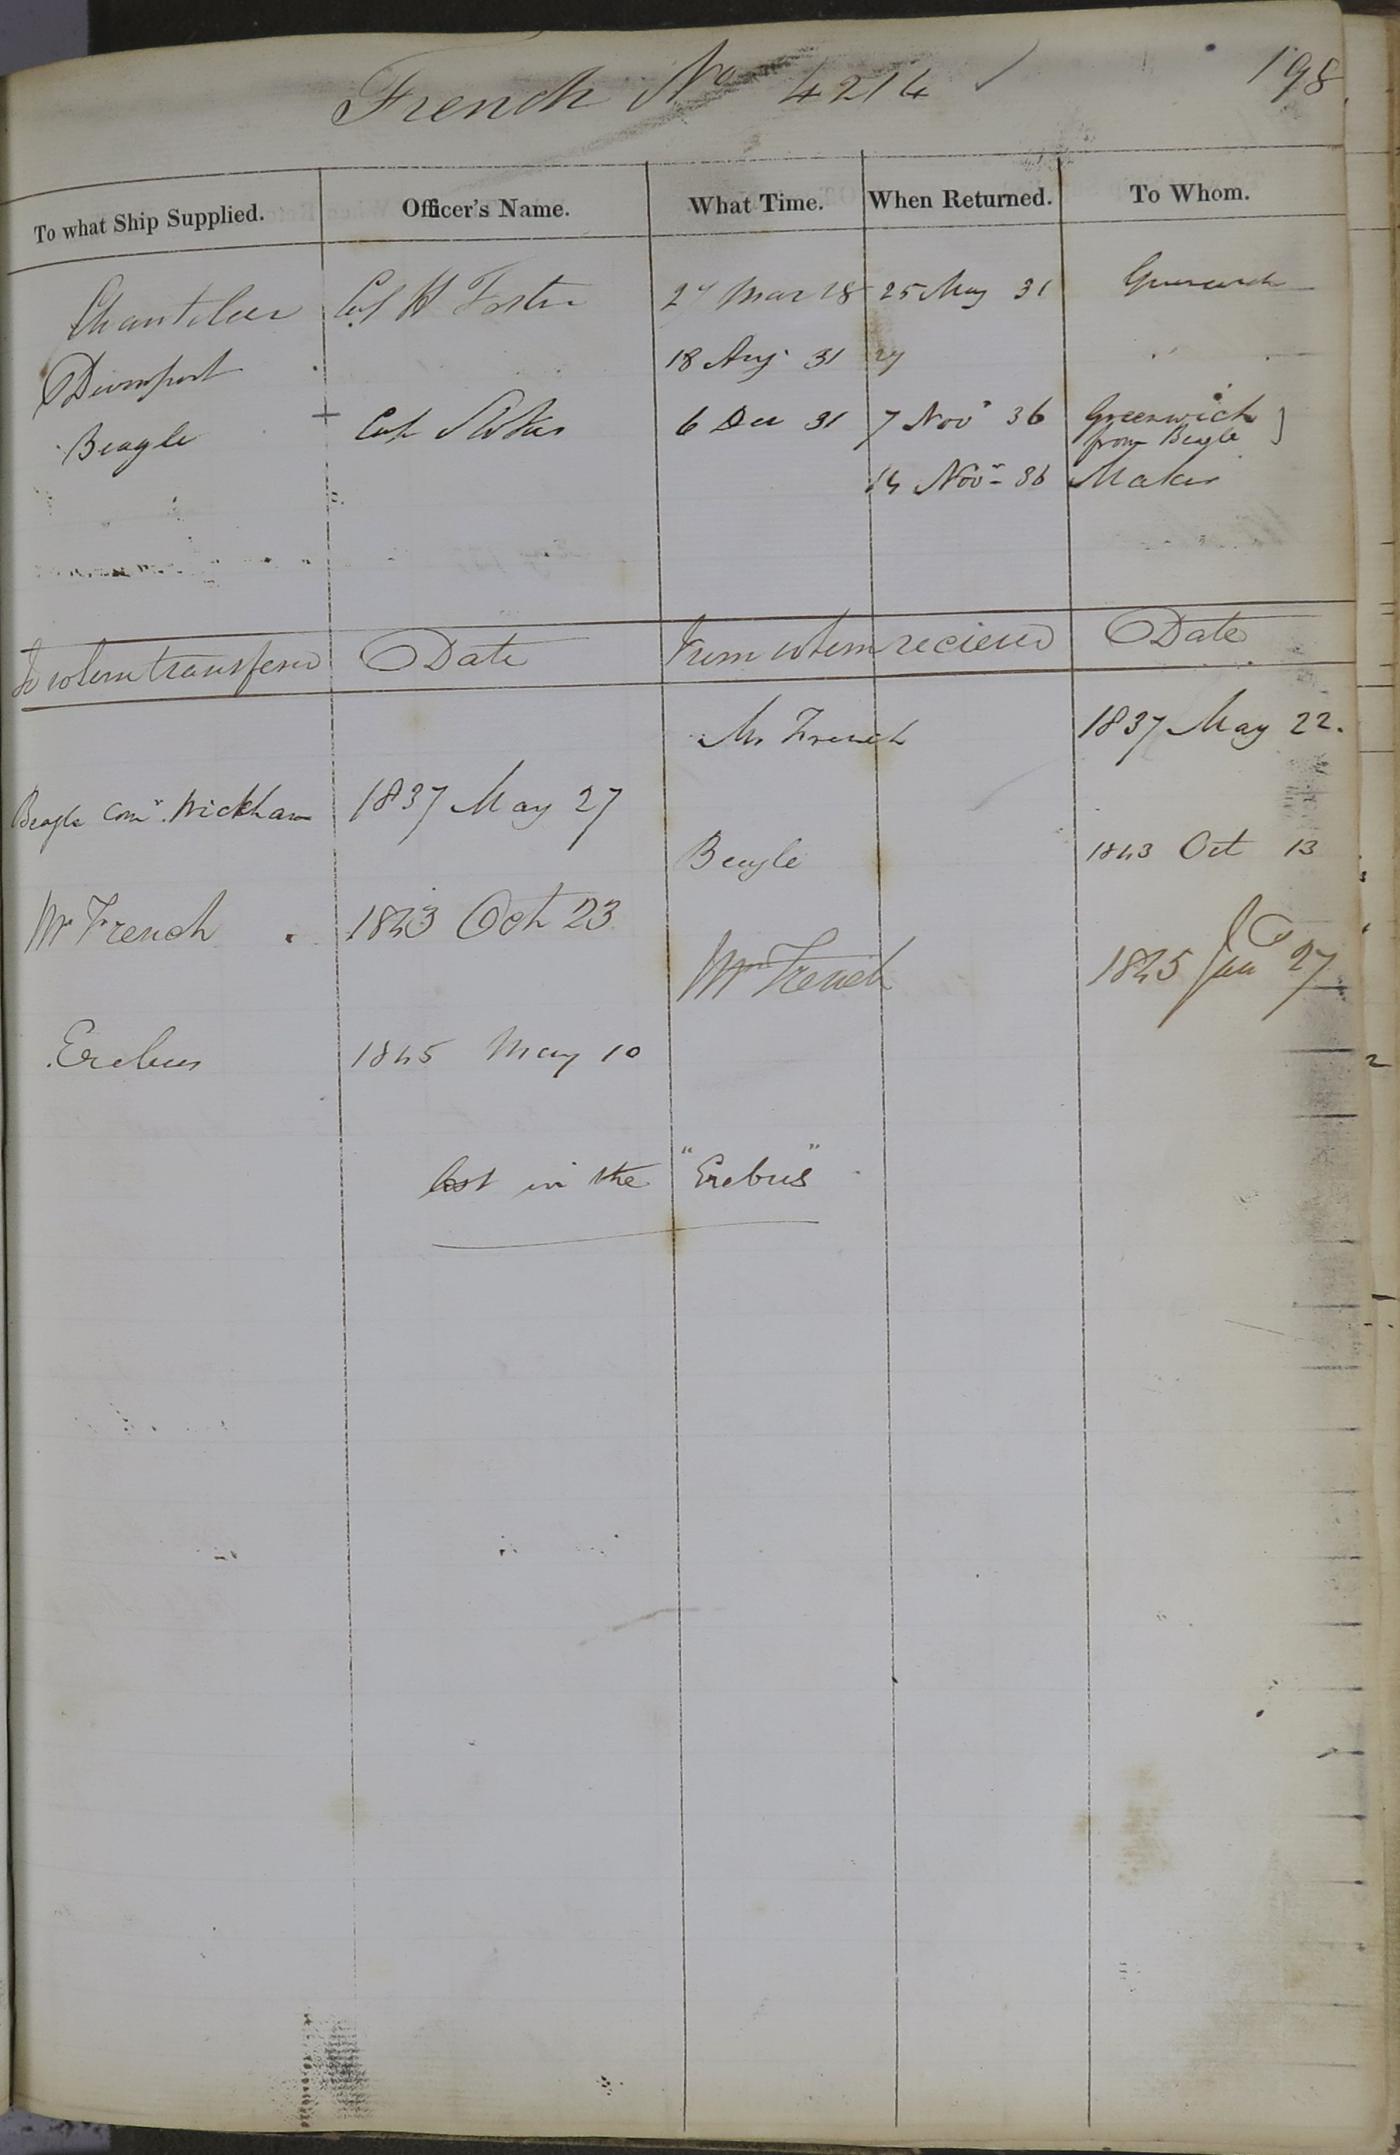 French No 4214 198
To what Ship Supplied. Officer's Name. What Time. When Returned. To Whom.
Chanticleer Capt H Foster 27 Mar 28 25 May 31 Greenwich
Devonport 18 Aug 31
Beagle + Capt Stokes 6 Dec 31 7 Novr 36 Greenwich
from Beagle }
14 Novr 36 Maker
To whom transfered Date From whom recieved Date
Mr French 1837 May 22.
Beagle Comr. Wickham 1837 May 27
Beagle 1843 Oct 13
Mr French 1843 Oct 23
Mr French 1845 Jan 27
Erebus 1845 May 10
lost in the "Erebus"